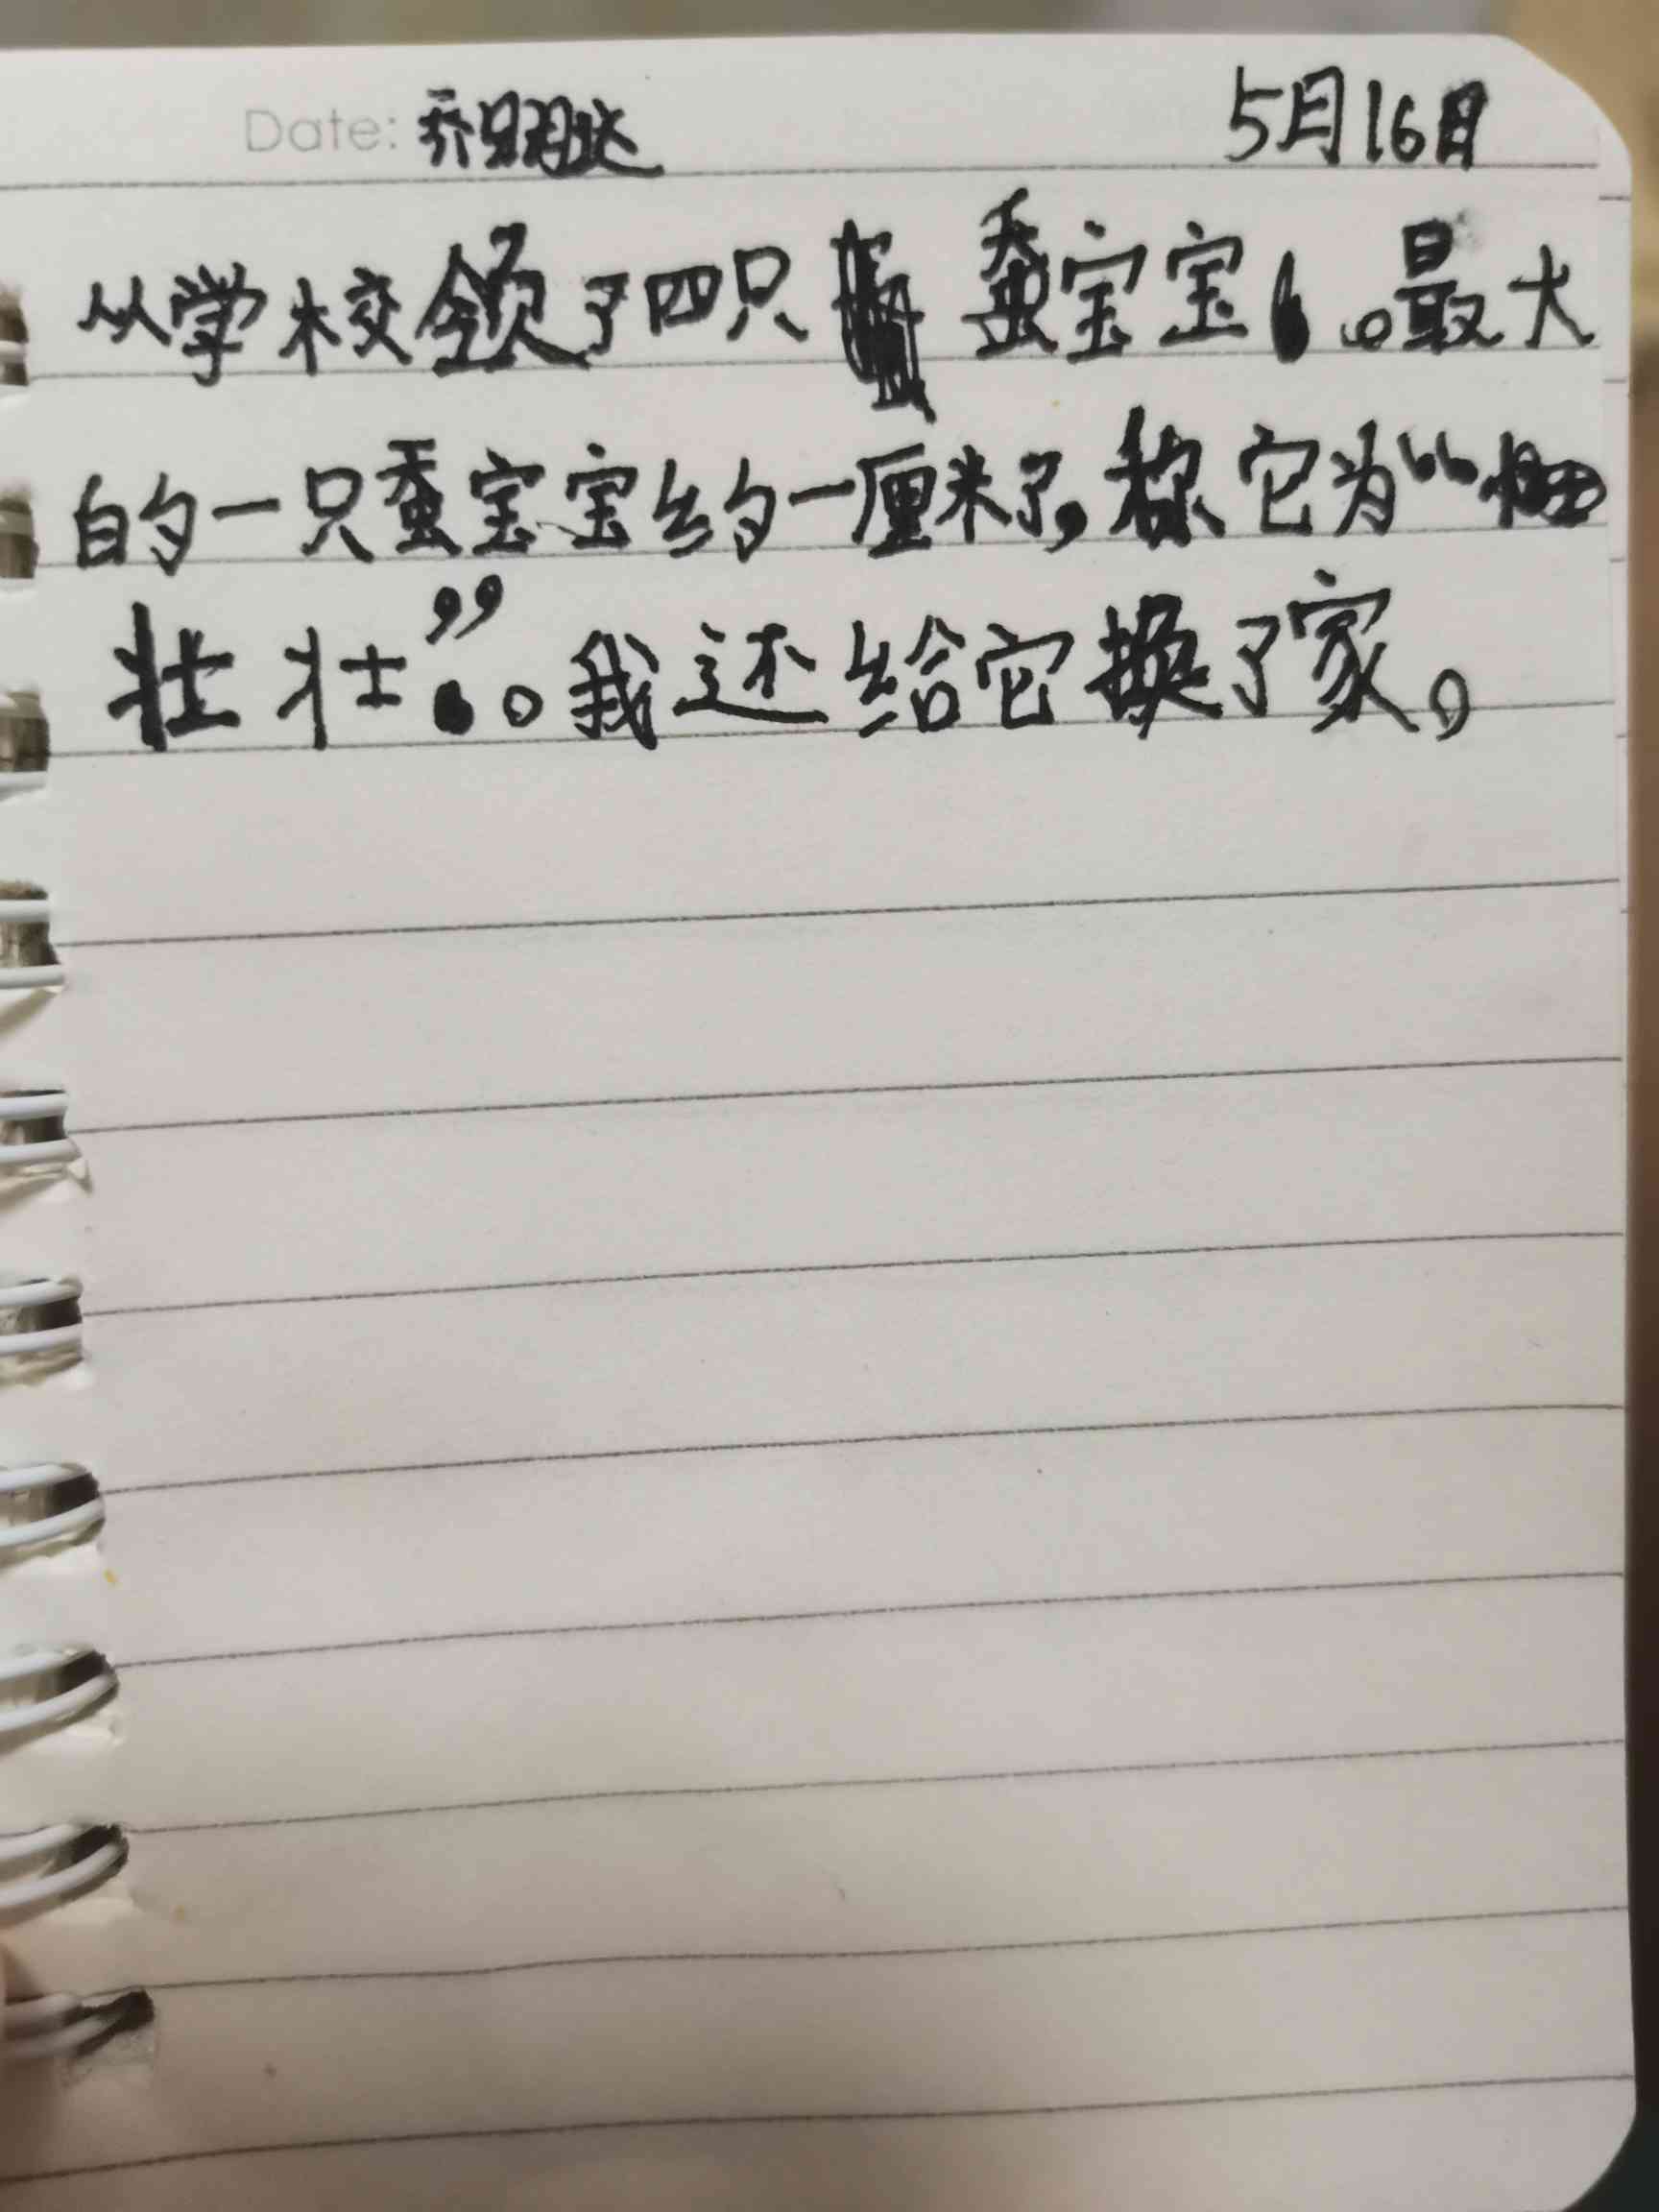 Date: 5月16日
从学校领了四只蚕宝宝。最大
的一只蚕宝宝约一厘米了,我称它为“
壮壮”。我还给它换了家。